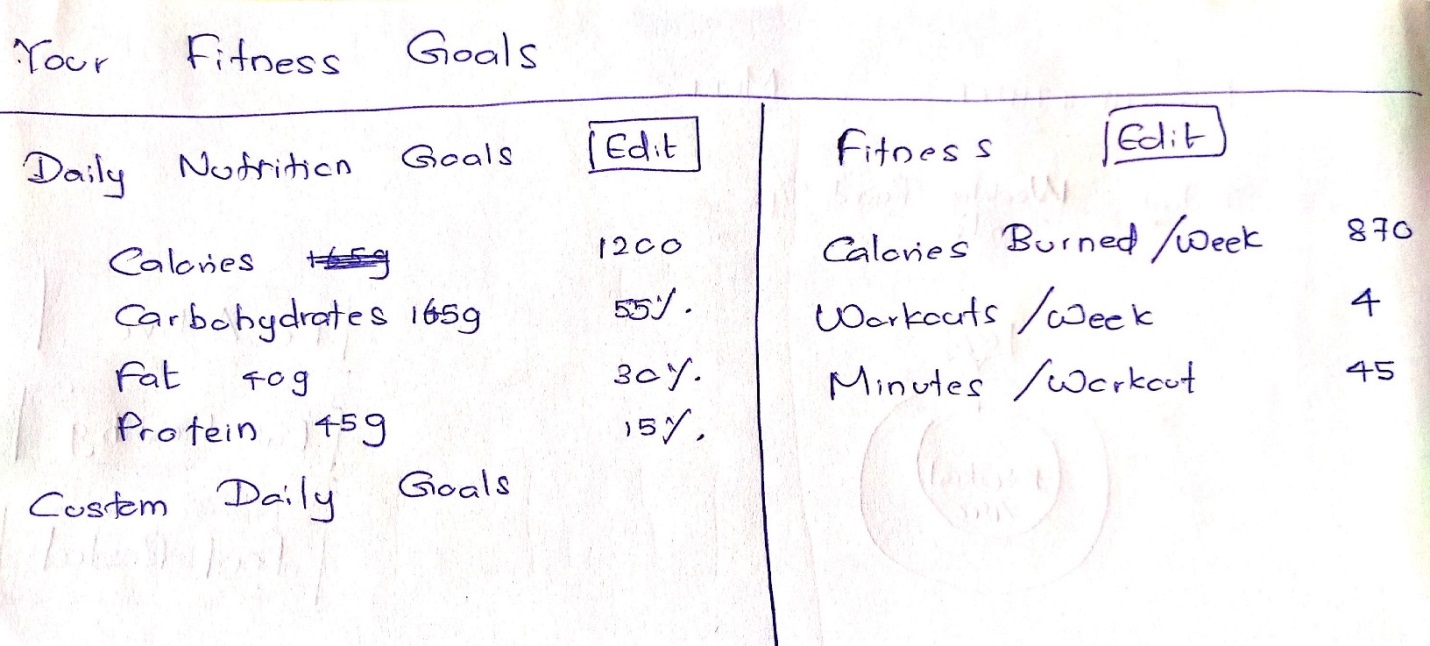 Your Fitness Goals
Daily Nutrition Goals Edit
Calories 1200
Carbohydrates 165g 55%.
Fat 40g 30%.
Protein 45g 15%.
Custom Daily Goals
Fitness Edit
Calories Burned /Week 870
Workouts /Week 4
Minutes /Workout 45